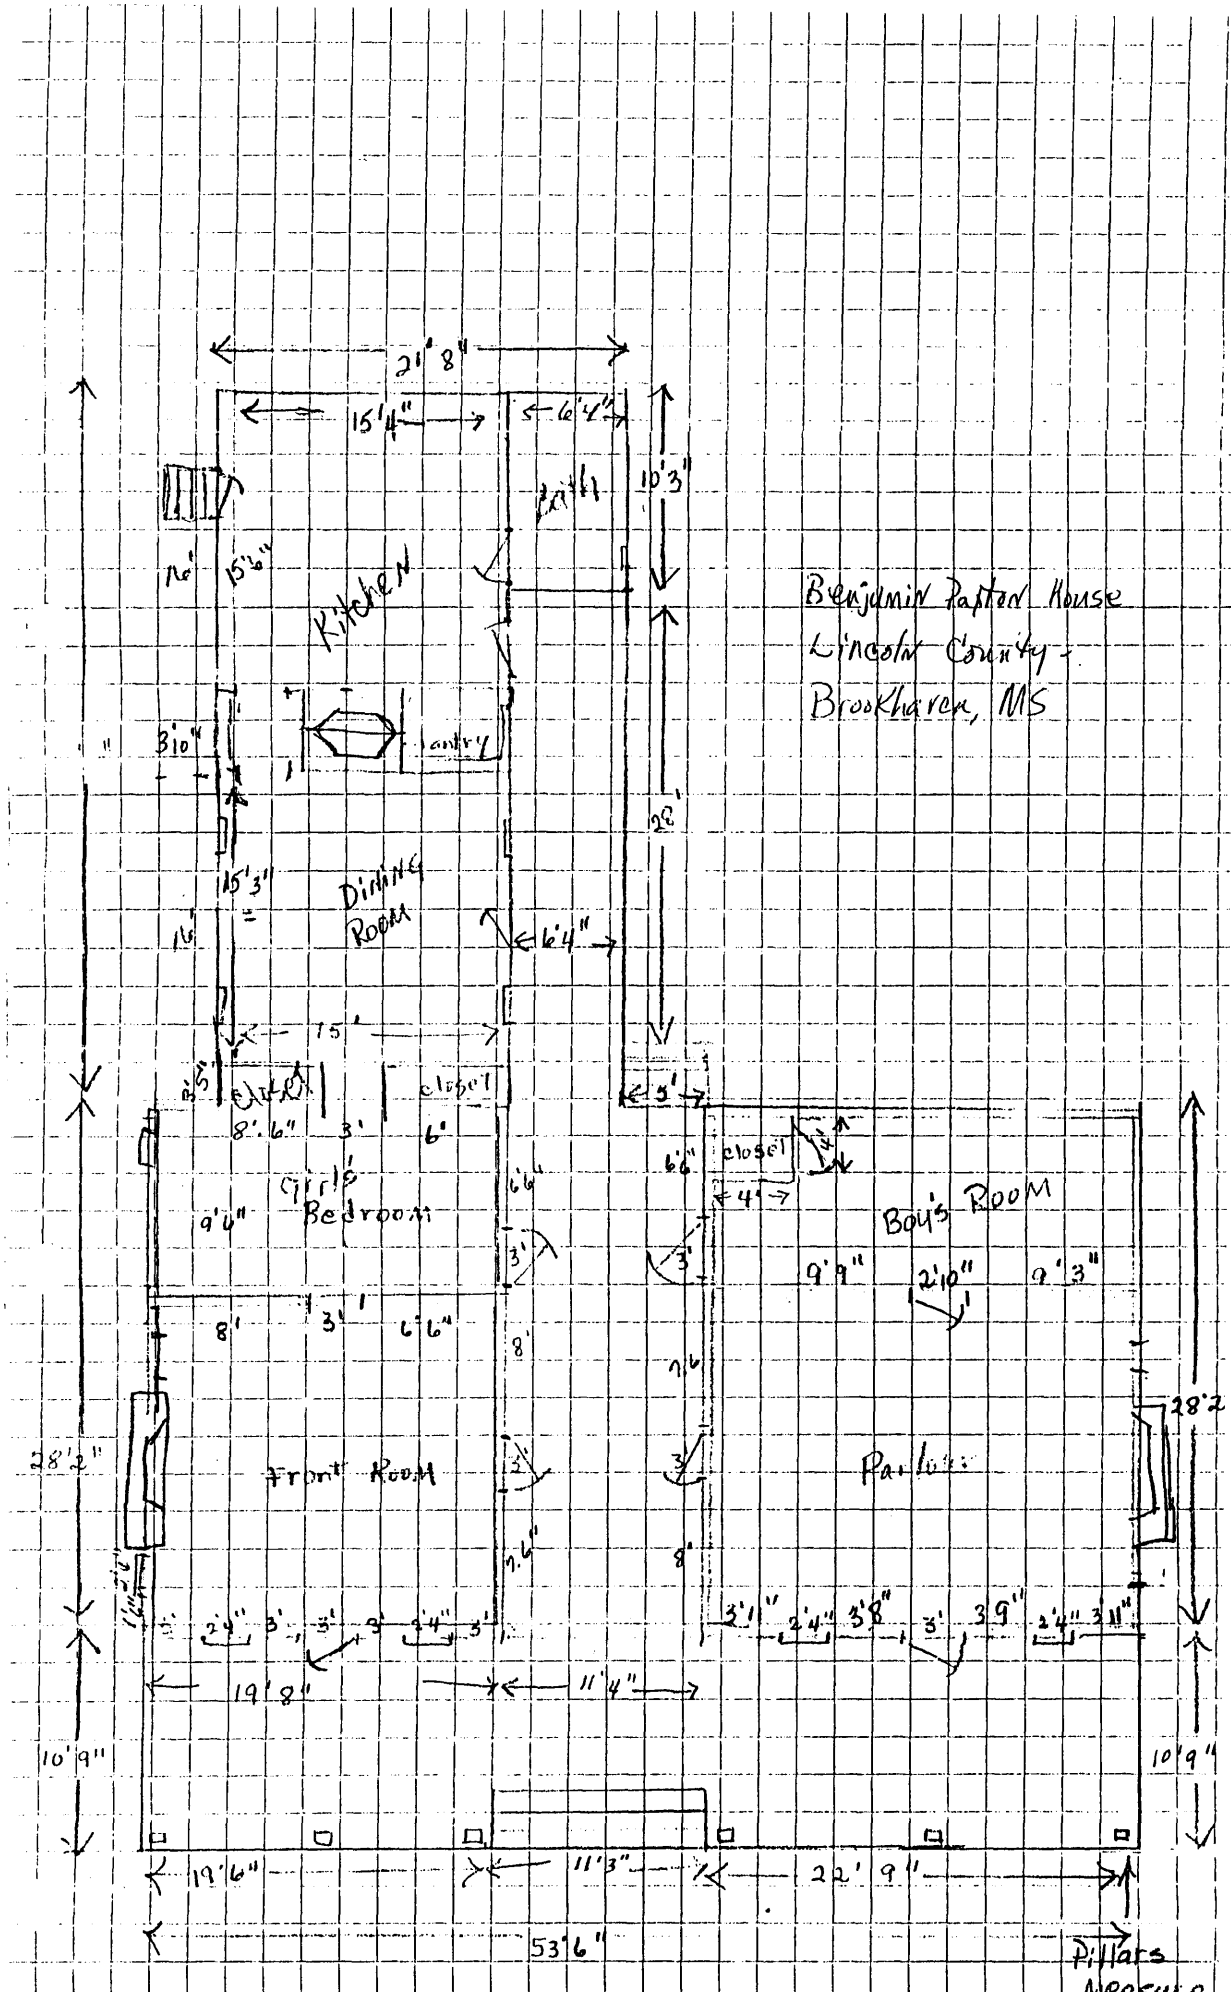 21' 8"
15'4"
6'4"
10'3"
Bath
16'
15'6"
Kitchen
Benjamin Paxton House
Lincoln County -
Brookhaven, MS
3'10"
antry
28'
15'3"
Dining
Room
16'
6'4"
15'
closet
closet
5'
8'.6"
3'
6'
6'6"
6'6"
closet
4'
4'
Girls'
Bedroom
Boy's Room
9'6"
3'
3'
9'9"
2'10"
9'3"
8'
3'
6'6"
8'
7.6
28'2"
28'2
Front Room
3'
3'
Parlor
7.6"
8'
3'
2'4"
3'
3'
3'
2'4"
3'
3'11"
2'4"
3'8"
3'
3'9"
2'4"
3'11"
19'8"
11'4"
10'9"
10'9"
19'6"
11'3"
22'9"
53'6"
Pillars
measure